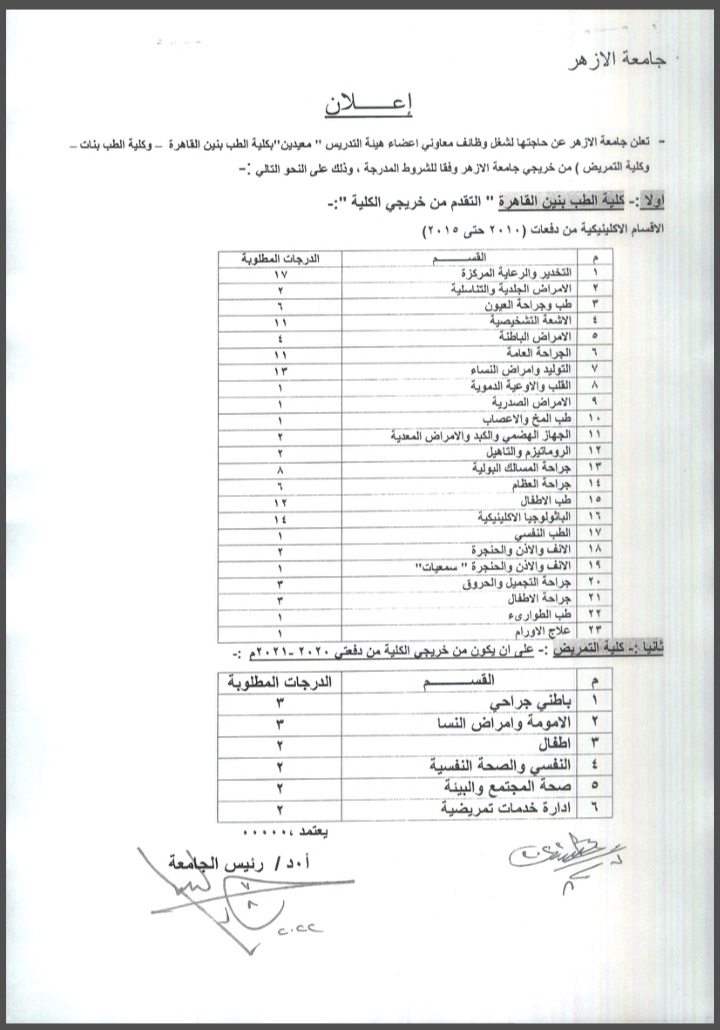 جامعة الازهر
إعـــــلان
- تعلن جامعة الازهر عن حاجتها لشغل وظائف معاوني اعضاء هيئة التدريس " معيدين "بكلية الطب بنين القاهرة – وكلية الطب بنات –
وكلية التمريض ) من خريجي جامعة الازهر وفقا للشروط المدرجة ، وذلك على النحو التالي :-
اولا :- كلية الطب بنين القاهرة " التقدم من خريجي الكلية ":-
الاقسام الاكلينيكية من دفعات (٢٠١٠ حتى ٢٠١٥)
م القســـــم الدرجات المطلوبة
١ التخدير والرعاية المركزة ١٧
٢ الامراض الجلدية والتناسلية ٢
٣ طب وجراحة العيون ٦
٤ الاشعة التشخيصية ١١
٥ الامراض الباطنة ٤
٦ الجراحة العامة ١١
٧ التوليد وامراض النساء ١٣
٨ القلب والاوعية الدموية ١
٩ الامراض الصدرية ١
١٠ طب المخ والاعصاب ١
١١ الجهاز الهضمي والكبد والامراض المعدية ٢
١٢ الروماتيزم والتاهيل ٢
١٣ جراحة المسالك البولية ٨
١٤ جراحة العظام ٦
١٥ طب الاطفال ١٢
١٦ الباثولوجيا الاكلينيكية ١٤
١٧ الطب النفسي ١
١٨ الانف والاذن والحنجرة ٢
١٩ الانف والاذن والحنجرة " سمعيات" ١
٢٠ جراحة التجميل والحروق ٣
٢١ جراحة الاطفال ٣
٢٢ طب الطوارىء ١
٢٣ علاج الاورام ١
ثانيا :- كلية التمريض :- على ان يكون من خريجي الكلية من دفعتي ٢٠٢٠ -٢٠٢١م :-
م القســـــم الدرجات المطلوبة
١ باطني جراحي ٣
٢ الامومة وامراض النسا ٣
٣ اطفال ٢
٤ النفسي والصحة النفسية ٢
٥ صحة المجتمع والبيئة ٢
٦ ادارة خدمات تمريضية ٢
يعتمد ،،٠٠٠٠٠
أ.د/ رئيس الجامعة
٢٠٢٢